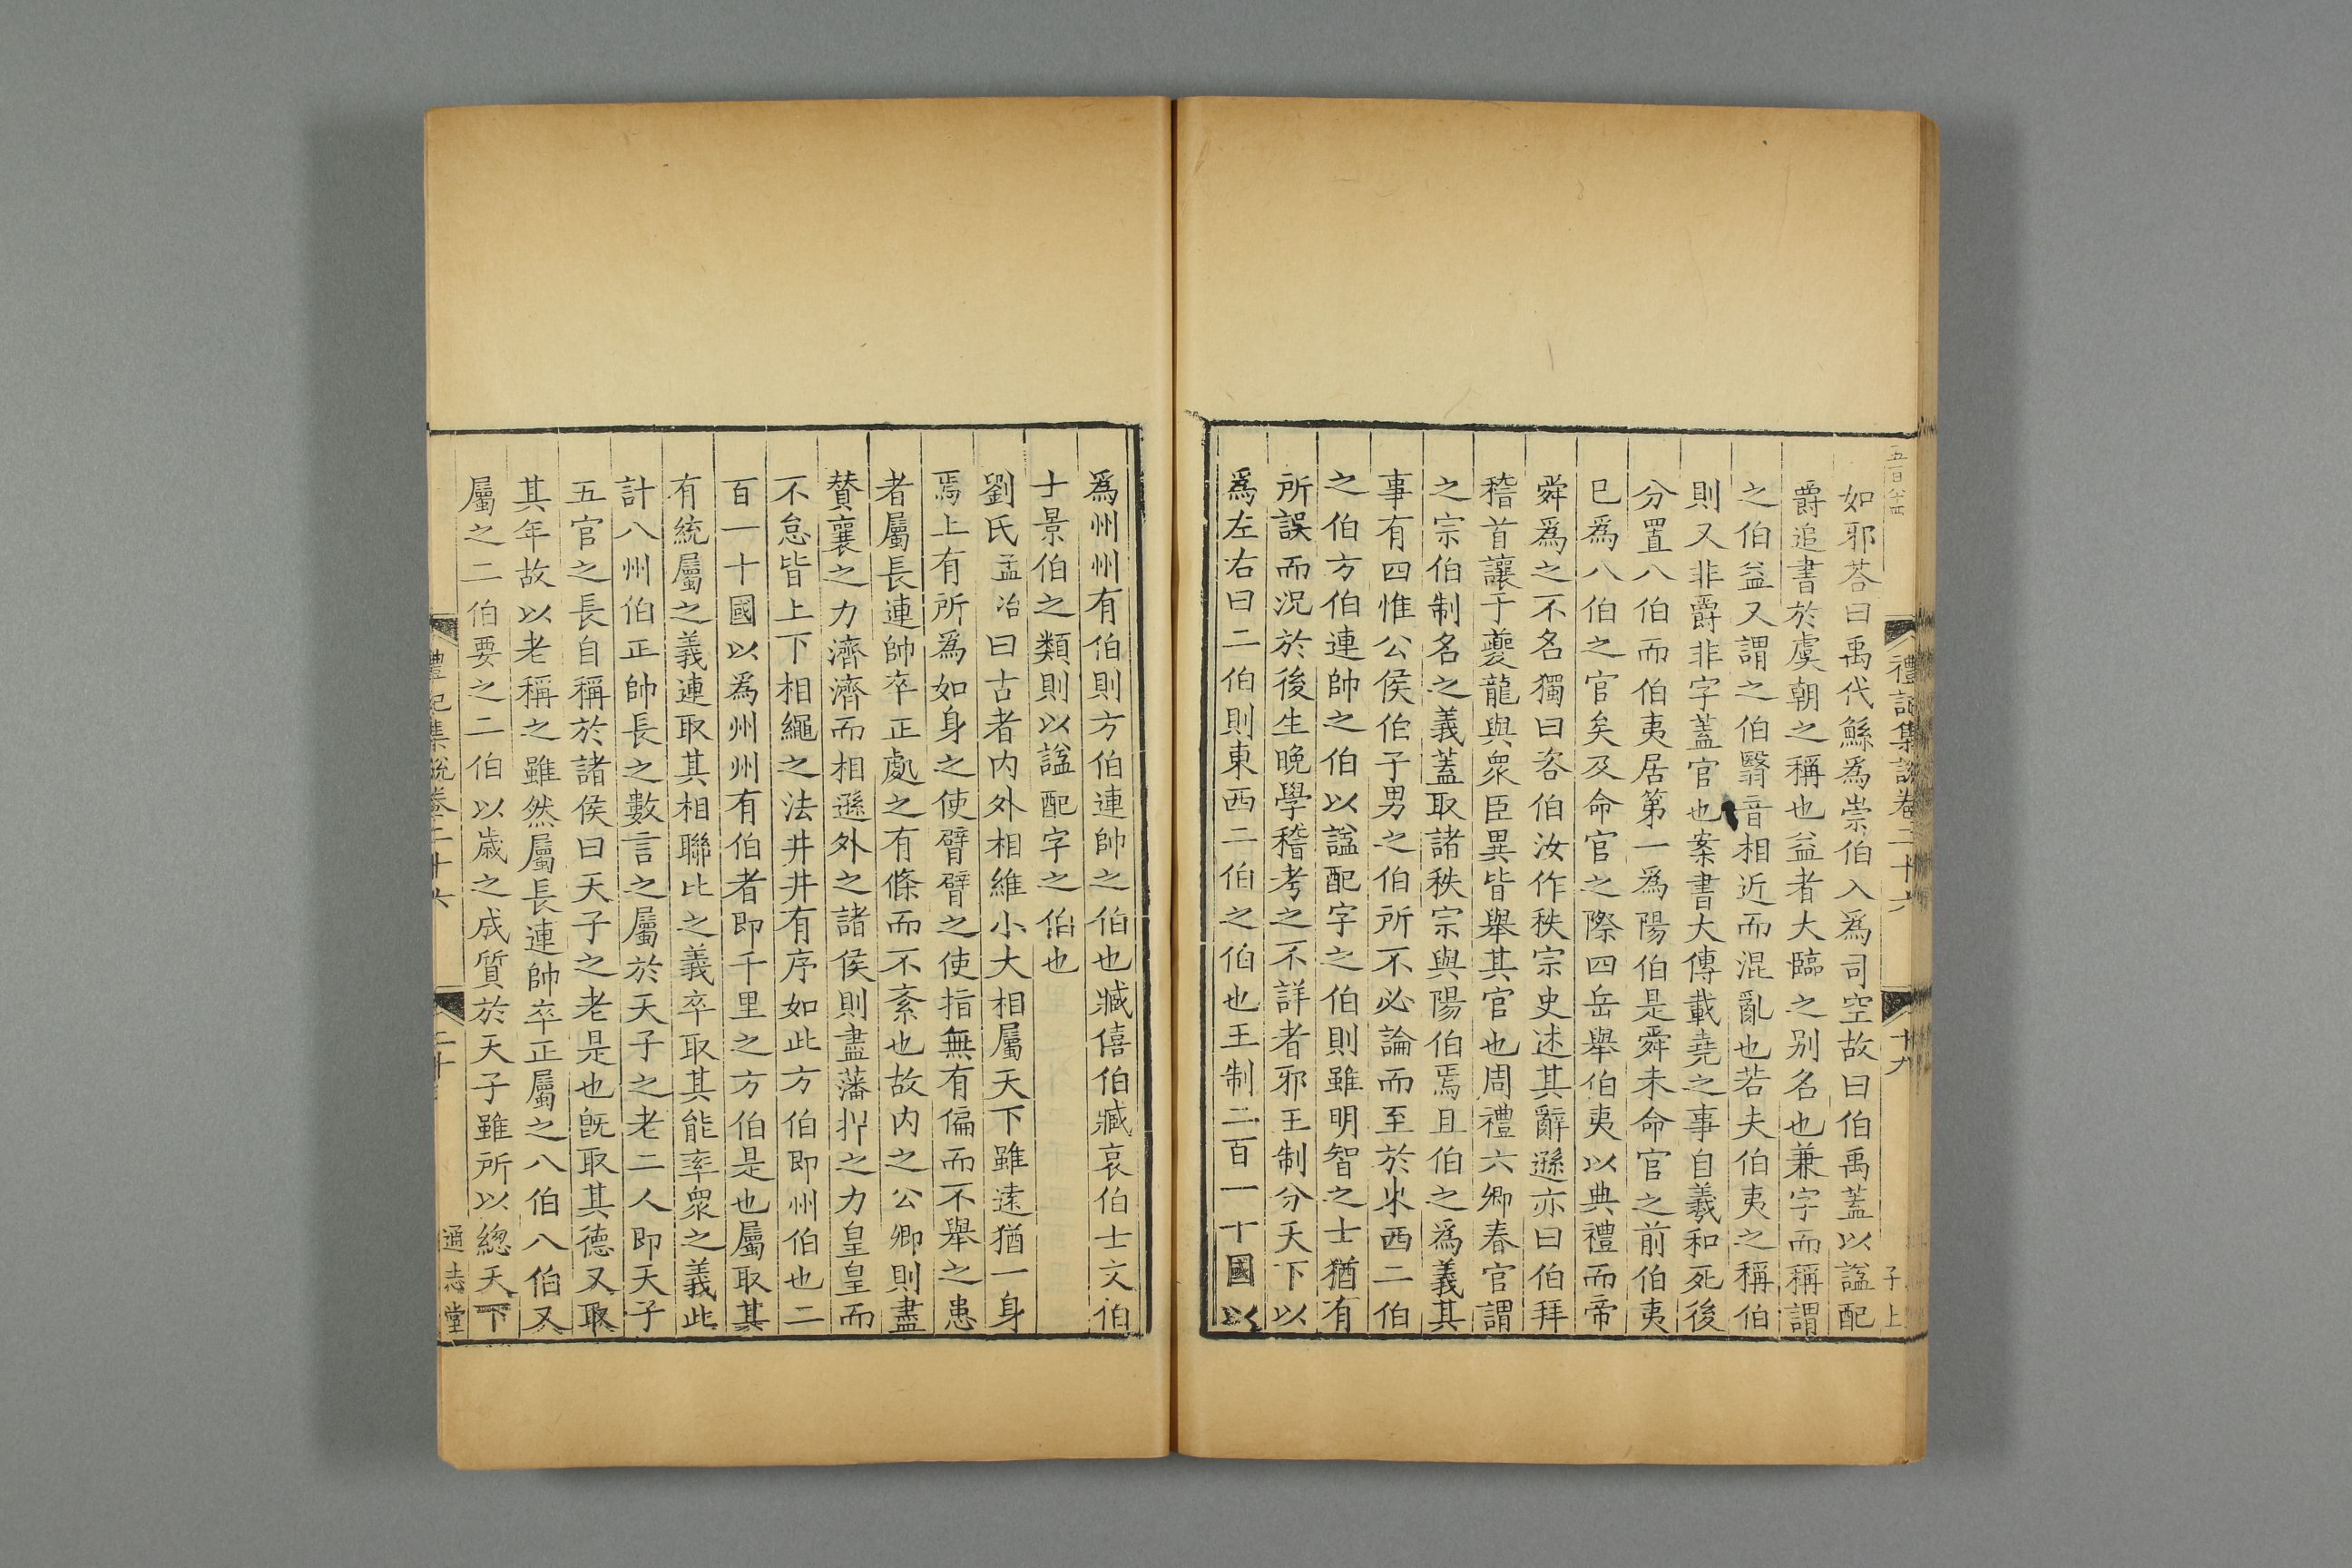 五百八十四
禮記集說卷二十六
十九
子上
如邪荅曰禹代鯀爲崇伯入爲司空故曰伯禹蓋以諡配
爵追書於虞朝之稱也益者大臨之别名也兼字而稱謂
之伯益又謂之伯翳音相近而混亂也若夫伯夷之稱伯
則又非爵非字蓋官也案書大傳載堯之事自羲和死後
分置八伯而伯夷居第一爲陽伯是舜未命官之前伯夷
已爲八伯之官矣及命官之際四岳舉伯夷以典禮而帝
舜爲之不名獨曰咨伯汝作秩宗史述其辭遜亦曰伯拜
稽首讓于夔龍與衆臣異皆舉其官也周禮六卿春官謂
之宗伯制名之義蓋取諸秩宗與陽伯焉且伯之爲義其
事有四惟公侯伯子男之伯所不必論而至於東西二伯
之伯方伯連帥之伯以諡配字之伯則雖明智之士猶有
所誤而況於後生晚學稽考之不詳者邪王制分天下以
爲左右曰二伯則東西二伯之伯也王制二百一十國以
爲州州有伯則方伯連帥之伯也臧僖伯臧哀伯士文伯
士景伯之類則以諡配字之伯也
劉氏孟冶曰古者内外相維小大相屬天下雖遠猶一身
焉上有所爲如身之使臂臂之使指無有偏而不舉之患
者屬長連帥卒正處之有條而不紊也故内之公卿則盡
贊襄之力濟濟而相遜外之諸侯則盡藩屏之力皇皇而
不怠皆上下相繩之法井井有序如此方伯即州伯也二
百一十國以爲州州有伯者即千里之方伯是也屬取其
有統屬之義連取其相聯比之義卒取其能率衆之義此
計八州伯正帥長之數言之屬於天子之老二人即天子
五官之長自稱於諸侯曰天子之老是也旣取其德又取
其年故以老稱之雖然屬長連帥卒正屬之八伯八伯又
屬之二伯要之二伯以歲之成質於天子雖所以總天下
禮記集說卷二十六
二十
通志堂